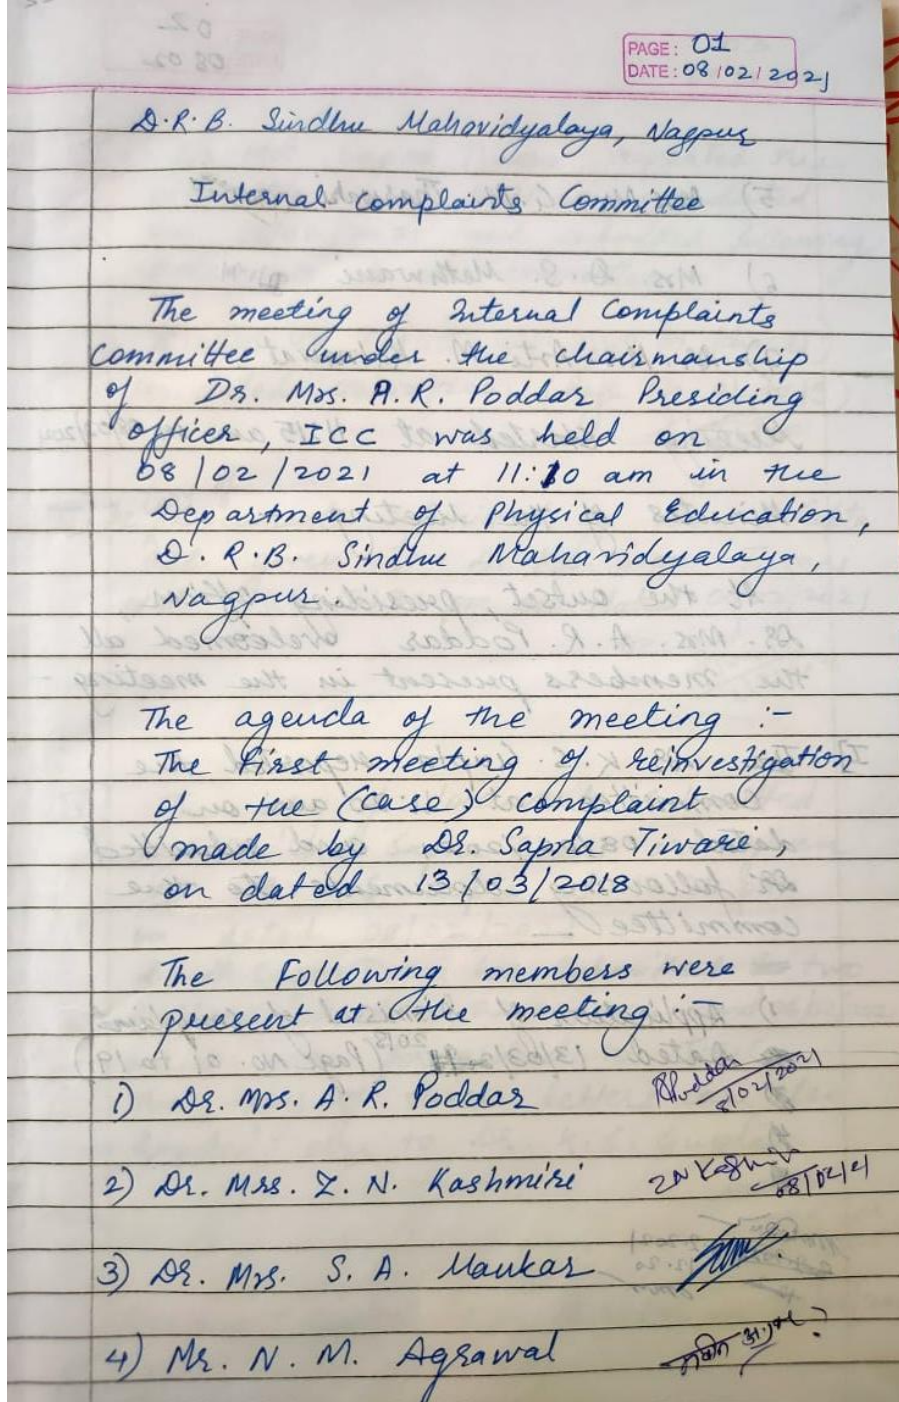 PAGE: 01
DATE: 08/02/2021
D.R.B. Sindhu Mahavidyalaya, Nagpur
Internal Complaints Committee
The meeting of Internal Complaints
Committee under the chairmanship
of Dr. Mrs. A.R. Poddar Presiding
officer, ICC was held on
08/02/2021 at 11:10 am in the
Department of Physical Education,
D.R.B. Sindhu Mahavidyalaya,
Nagpur.
The agenda of the meeting :-
The First meeting of reinvestigation
of the (case) complaint
made by Dr. Sapna Tiwari,
on dated 13/03/2018
The Following members were
present at the meeting :-
1) Dr. Mrs. A. R. Poddar APoddar 8/02/2021
2) Dr. Mrs. Z. N. Kashmiri ZN Kashmiri 08/02/21
3) Dr. Mrs. S. A. Mankar
4) Mr. N. M. Agrawal